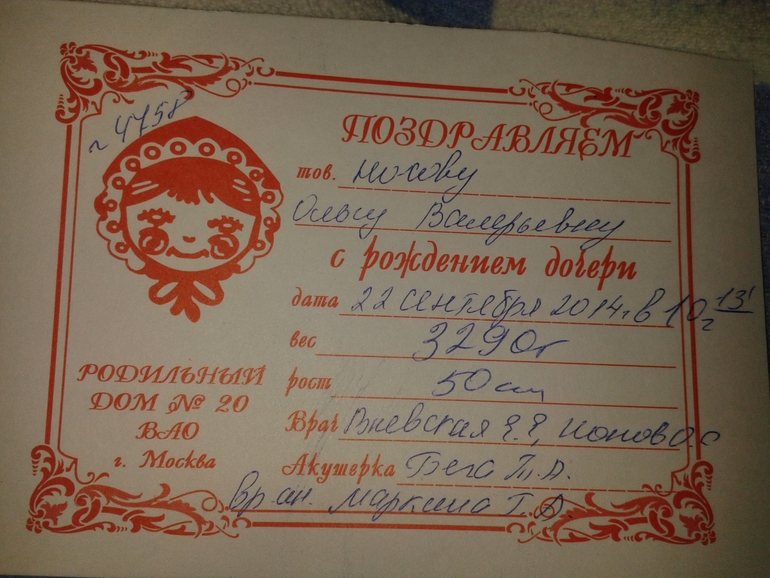 г 4758
ПОЗДРАВЛЯЕМ
тов. Носову
Ольгу Валерьевну
с рождением дочери
дата 22 сентября 2014г в 10 13'
вес 3290г
рост 50см
Врач Е.Е, Попов О.С
Акушерка Бега Т.А.
Вр ан. Маркина Т.А
РОДИЛЬНЫЙ
ДОМ № 20
ВАО
г. Москва